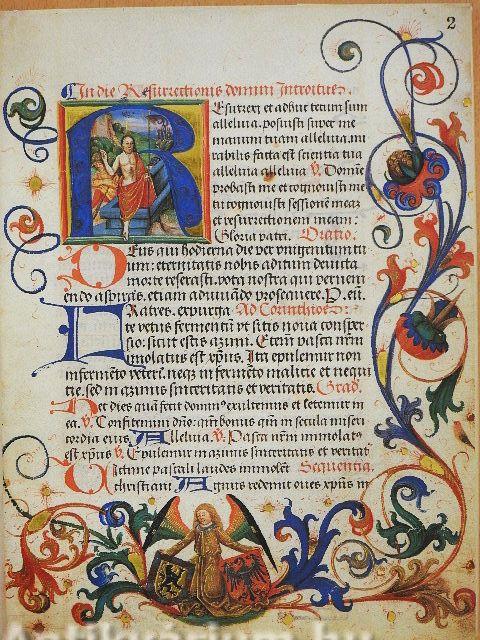 2
In die Resurrectionis domini Introitus.
Resurrexi et adhuc tecum sum
alleluia. posuisti super me
manum tuam alleluia. mi
rabilis facta est scientia tua
alleluia alleluia V. Domine
probasti me et cognouisti me
tu cognouisti sessionem meam
et resurrectionem meam:
Gloria patri. Oratio.
Deus qui hodierna die per vnigenitum tu
um: eternitatis nobis aditum deuicta
morte reserasti. vota nostra que preueni
endo aspiras. etiam adiuuando prosequere. P. eū.
Fratres. expurga Ad Corinthios
te vetus fermentū vt sitis noua consper
sio: sicut estis azimi. Etem pasca nr̄m
immolatus est xp̄us. Itaq epulemur non
in fermēto veteri. neqz in fermēto malitie et nequi
tie. sed in azimis sinceritatis et veritatis. Grad.
Hec dies quā fecit domin⁹ exultemus et letemur in
ea. V. Confitemini dn̄o: qm̄ bonus qm̄ in secula miseri
cordia eius. Alleluia. V. Pasca nr̄m immolat⁹
est xp̄us V. Epulemur in azimis sinceritatis et veritat
Victime pascali laudes immolēt Sequentia.
christiani. Agnus redemit oues xp̄us in
Antikvárium.hu